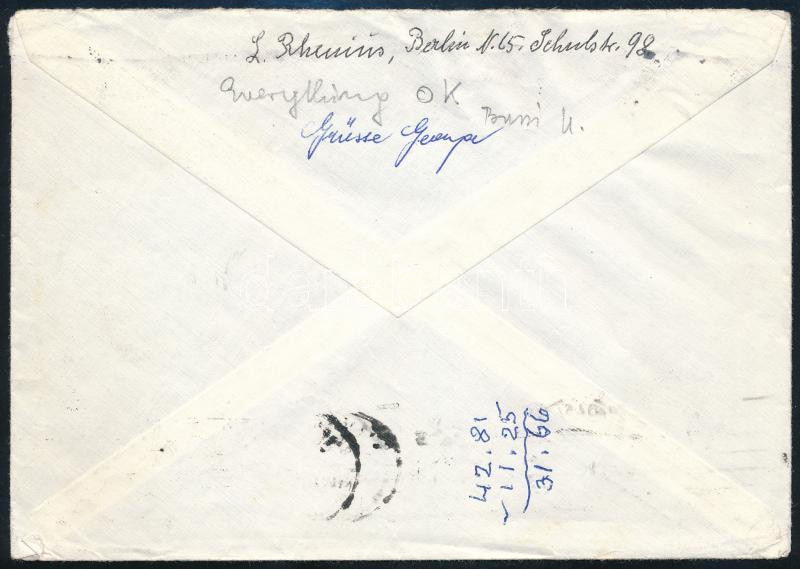 L. Rhenius, Berlin N.65. Schulstr. 98
Everything OK
Bussi U.
Grüsse Georg
42.81
- 11.25
31.66